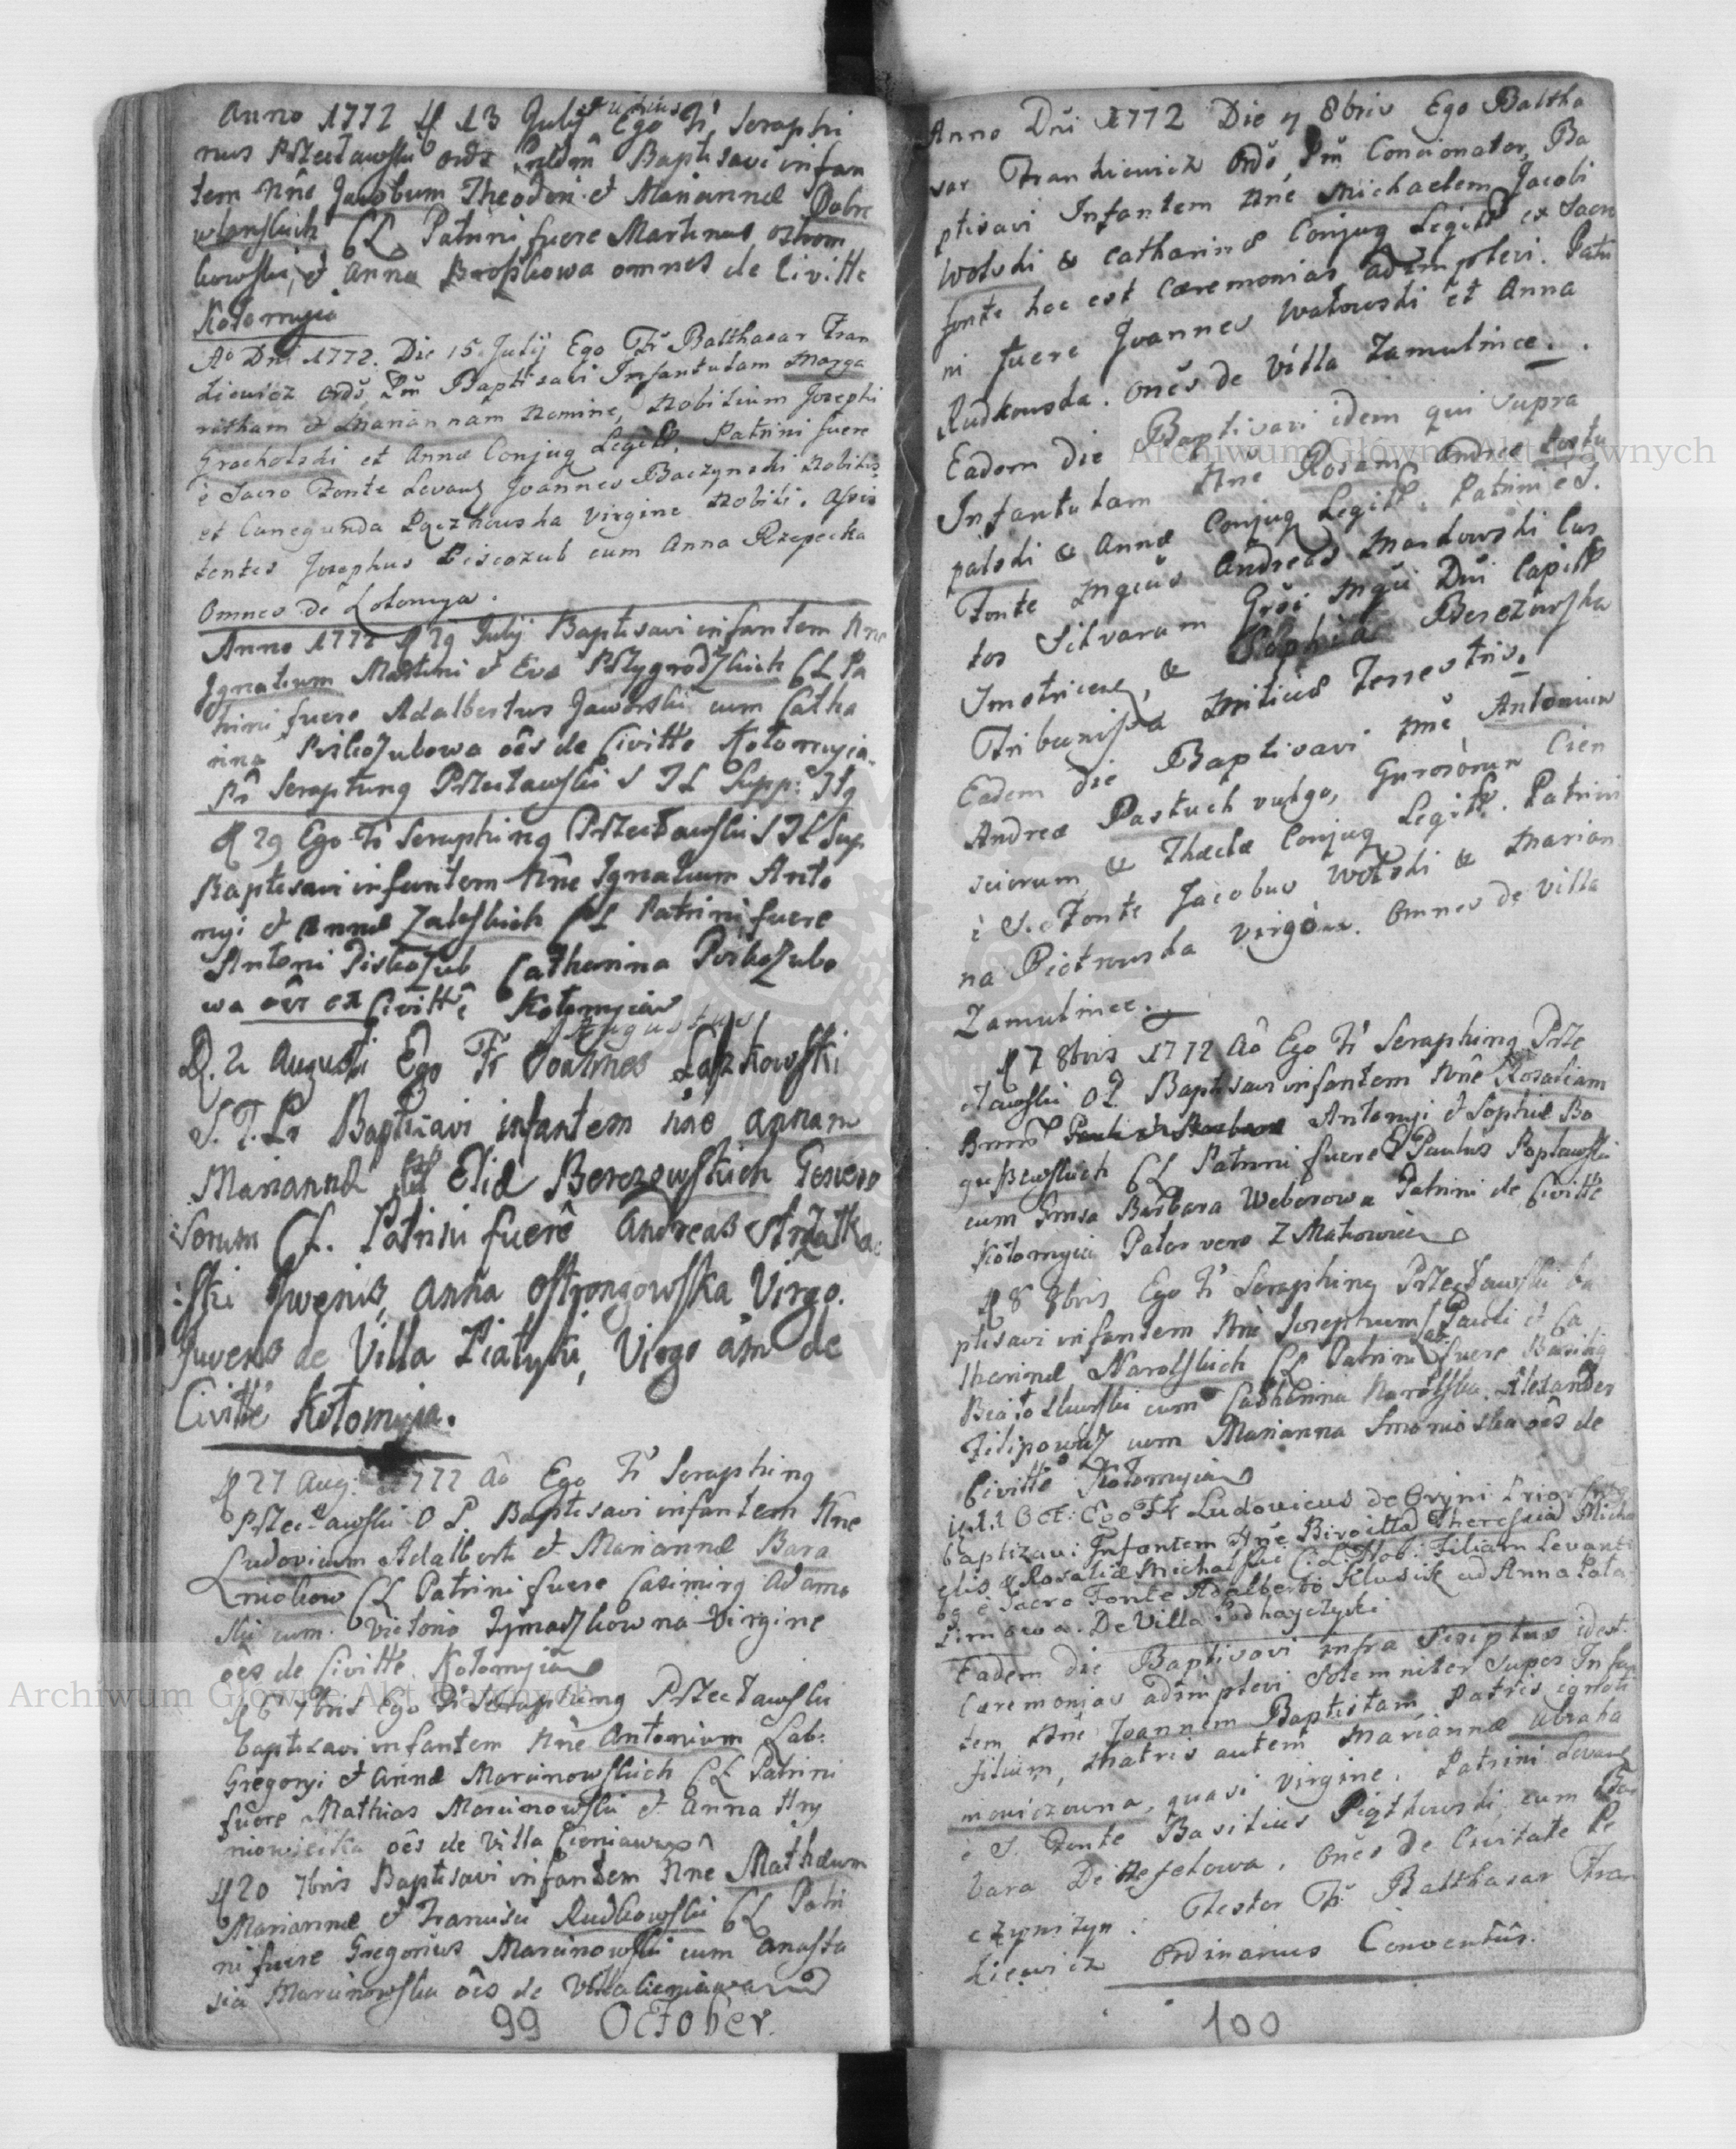 Anno 1772 d 13 Julij Ego Fr Seraphi
nus Przecławski Ords Prdm Baptisavi infan
tem Nne Jacobum Theodori et Mariannæ Dobro
wlanskich CL Patrini fuere Martinus ostrom
kowski, et Anna Broszkowa omnes de Civitte
Kołomyia
Ao Dni 1772. Die 15 Julij Ego Fr Balthasar Fran
kiewicz Ords Pm Baptisavi Infantulam Marga
ritham et Mariannam Nomine, Nobilium Josephi
Grocholski et Annæ Conjug Legitt. Patrini fuere
è Sacro Fonte Levant Joannes Baczynski Nobilis
et Cunegunda Pączkowska Virgine Nobili. Assis
tentes Josephus Piscozub cum Anna Rzepecka
Omnes de Kolomya.
Anno 1772 d 29 Julij Baptisavi infantem Nne
Ignatium Martini et Evæ Przygrodzkich CL Pa
trini fuere Adalbertus Jaworski cum Catha
rina Piskozubowa oes de Civitte Kołomyia.
Fr Seraphinus Przecławski S T L Supp:
d 29 Ego Fr Seraphinus Przecławski S T L Sup
Baptisavi infantem Nne Ignatium Anto
nyi et Annæ Zaleskich CL Patrini fuere
Antoni Piskozub Catharina Piskozubo
wa oes ex Civitte Kołomyia
Augustus
D. 2 Augusti Ego Fr Joannes Laskowski
S. T. Lr Baptizavi infantem nne Annam
Mariannæ et Eliæ Berezowskich Genero
:sorum CL. Patrini fuere Andreas Strzałko
:ski Juvenis, Anna Ostrongowska Virgo.
Juvenis de Villa Piatyki, Virgo am de
Civitte Kołomyia.
d 27 Aug: 1772 Ao Ego Fr Seraphinus
Przecławski O P Baptisavi infantem Nne
Ludovicum Adalberti et Mariannæ Bara
niokow CL Patrini fuere Casimirus Adamo
ski cum Victoria Tymoszkowna Virgine
oes de Civitte Kołomyia
d 6 7bris Ego Fr Seraphinus Przecławski
baptisavi infantem Nne Antonium Lab:
Gregoryi et Annæ Marcinowskich CL Patrini
fuere Mathias Marcinowski et Anna Hry
niowiecka oes de Villa Cieniawa
d 20 7bris Baptisavi infantem Nne Mathæum
Mariannæ et Francisci Rudkowski CL Patri
ni fuere Gregorius Marcinowski cum Anasta
sia Marcinowska oes de Villa Cieniawa
99 OCTober.
Anno Dni 1772 Die 7 8bris Ego Baltha
sar Frankiewicz Ords Pm Concionator, Ba
ptisavi Infantem Nne Michaelem Jacobi
Wolski & Catharinæ Conjug Legitt ex Sacro
fonte hoc est Cæremonias adimplevi. Patri
ni fuere Joannes Watowski et Anna
Rudkowska. Ones de Villa Zamulince.
Eadem die Baptisavi idem qui supra
Infantulam Nne Rosam, Andreæ Postu
palski & Annæ Conjug Legitt. Patrini e S.
Fonte Mgcus Andreas Markowski Cus
tos Silvarum Grosi Mgci Dni Capitt
Smotricens, & Sophia Berezowska
Tribunissa Militiæ Terrestris.
Eadem die Baptisavi nne Antonium
Andreæ Pastuch vulgo, Generosorum Cien
sciorum & Theclæ Conjug Legitt. Patrini
è S. Fonte Jacobus Wolski & Marian
na Piotrowska Virgine. Omnes de Villa
Zamulince.
d 7 8bris 1772 Ao Ego Fr Seraphinus Prze
cławski O P Baptisavi infantem Nne Rosaliam
Antonyi et Sophiæ Bo
guszewskich CL Patrini fuere Paulus Popławski
cum Barbara Weberowa Patrini de Civitte
Kołomyia Pater vero Z Matiowiec
d 8 8bris Ego Fr Seraphinus Przecławski ba
ptisavi infantem Nne Josephum Pauli et Ca
tharinæ Narolskich CL Patrini fuere Basilius
Białoskurski cum Catharina Narolska, Alexander
Filipowicz cum Marianna Smonioska oes de
Civitte Kołomyia
11 Oct: Ego Fr Ludovicus de Oryni Prior
baptizavi Infantem Nne Birgitta Theresiæ Micha
elis & Rosaliæ Michalskie C:L Nob: Filiam Levanti
bg è Sacro Fonte Adalberto Klusik ad Anna Pola
Limowa. De Villa Podhayczyki
Eadem die Baptisavi infra scriptus idest.
Cæremonias adimplevi Solemniter super Infan
tem Nne Joannem Baptistam Patris ignoti
filium, Matris autem Mariannæ Abraha
mowiczowna, quasi virgine. Patrini Levant
è S. Fonte Basilius Piątkowski, cum Bar
bara De Nesselowa. Ones de Civitate Pe
czynizyn. Testor Fr Balthasar Fran
kiewicz Ordinarius Conventus.
100
Archiwum Główne Akt Dawnych
Archiwum Główne Akt Dawnych